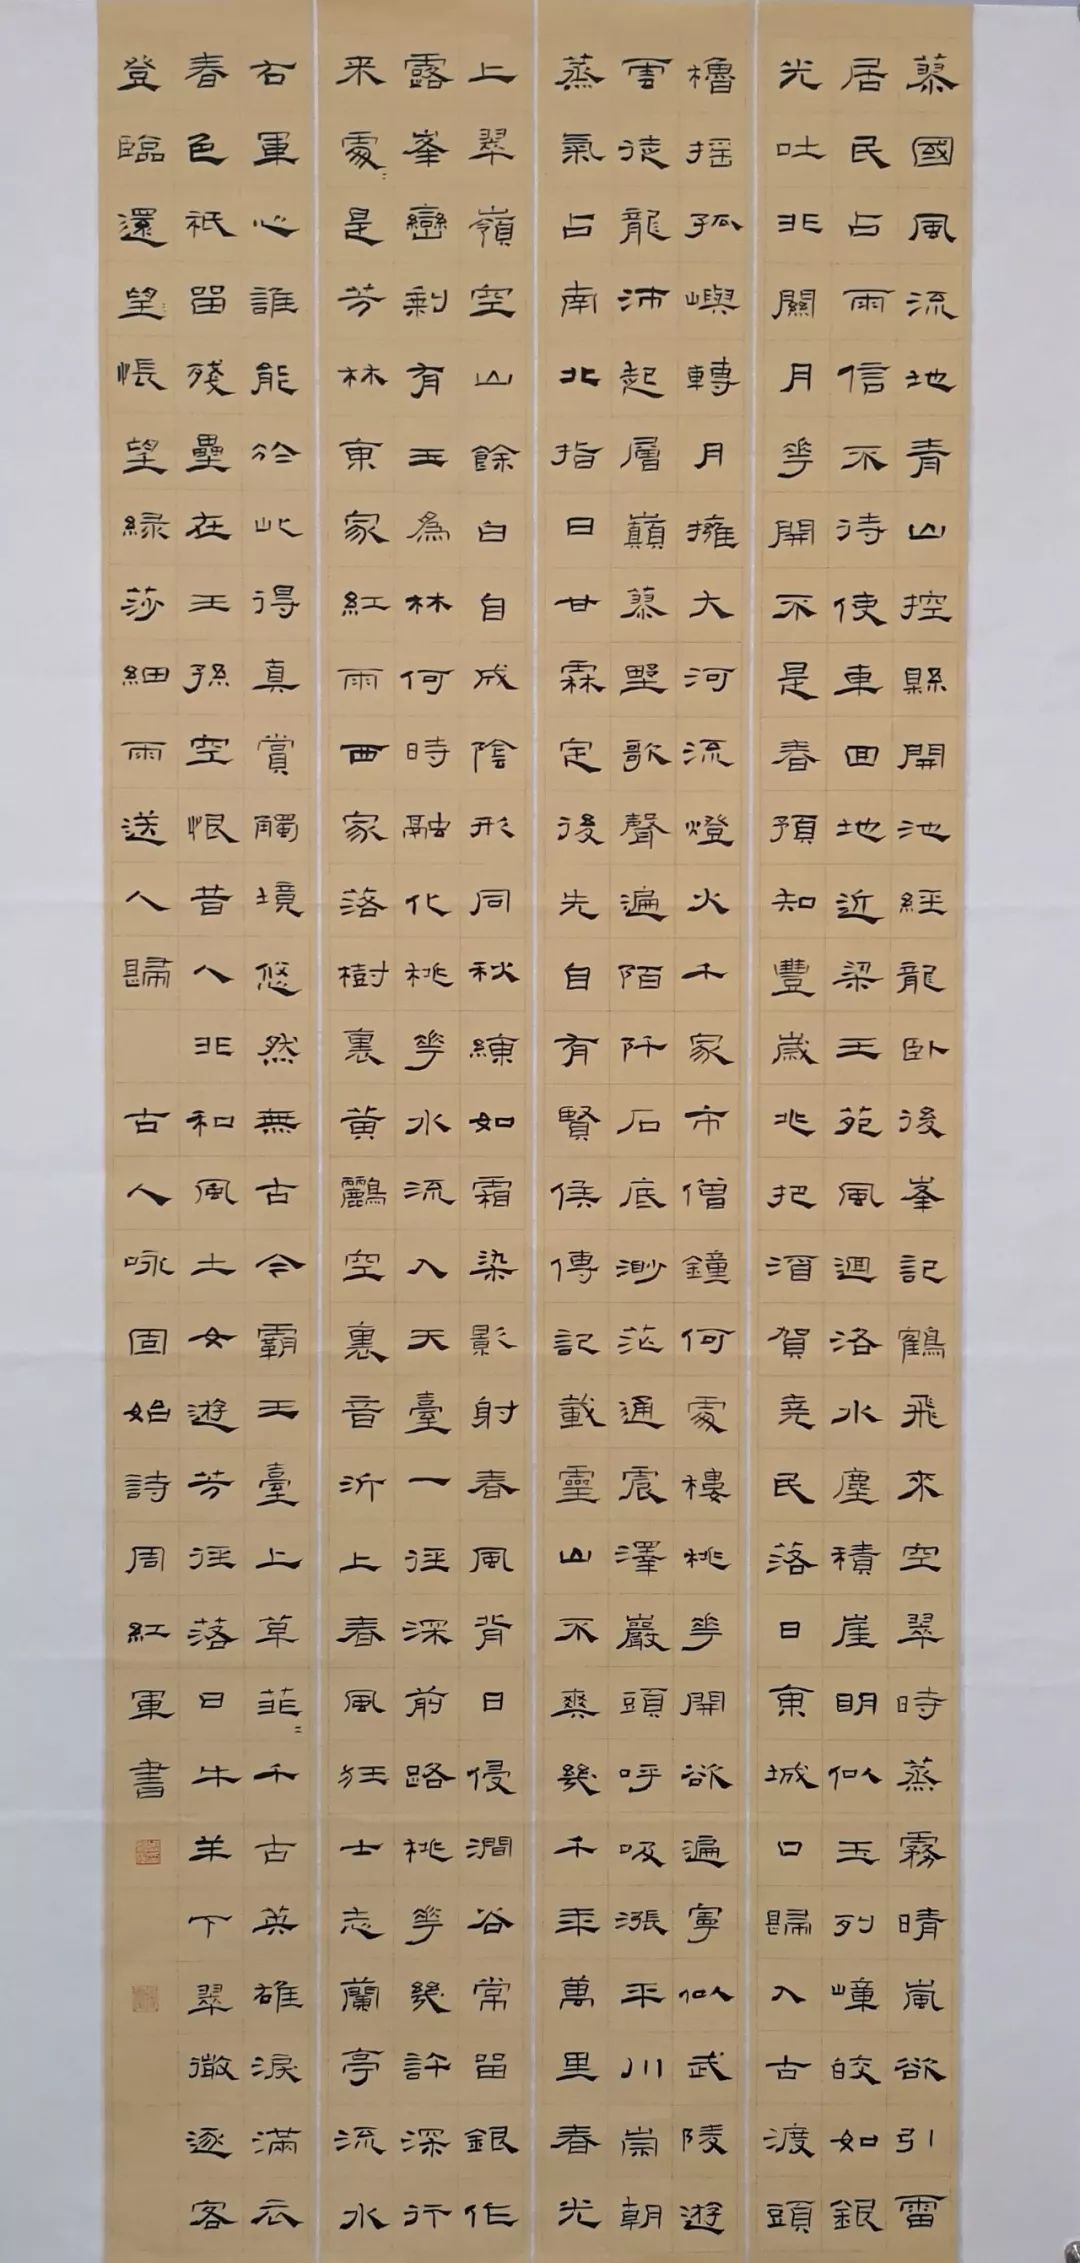 蓼國風流地青山控縣開池經龍臥後峯記鶴飛來空翠時蒸霧晴嵐欲引雷
居民占雨信不待使車回地近梁王苑風迴洛水塵積崖明似玉列嶂皎如銀
光吐北關月華開不是春預知豐歲兆把酒賀堯民落日東城口歸入古渡頭
櫓搖孤嶼轉月擁大河流燈火千家市僧鐘何處樓桃花開欲遍寧似武陵遊
雲徒龍沛起層巔蓼野歌聲遍陌阡石底渺茫通震澤巖頭呼吸漲平川崇朝
蒸氣占南北指日甘霖定後先自有賢侯傳記載靈山不爽幾千年萬里春光
上翠嶺空山餘白自成陰形同秋練如霜染影射春風背日侵澗谷常留銀作
露峯巒剩有玉為林何時融化桃花水流入天臺一徑深前路桃花幾許深行
来處〻是芳林東家紅雨西家落樹裏黃鸝空裏音沂上春風狂士志蘭亭流水
右軍心誰能於此得真賞觸境悠然無古今霸王臺上草菲〻千古英雄淚滿衣
春色祇留殘壘在王孫空恨昔人非和風士女遊芳徑落日牛羊下翠微逐客
登臨還望〻悵望綠莎細雨送人歸 古人咏固始詩周紅軍書